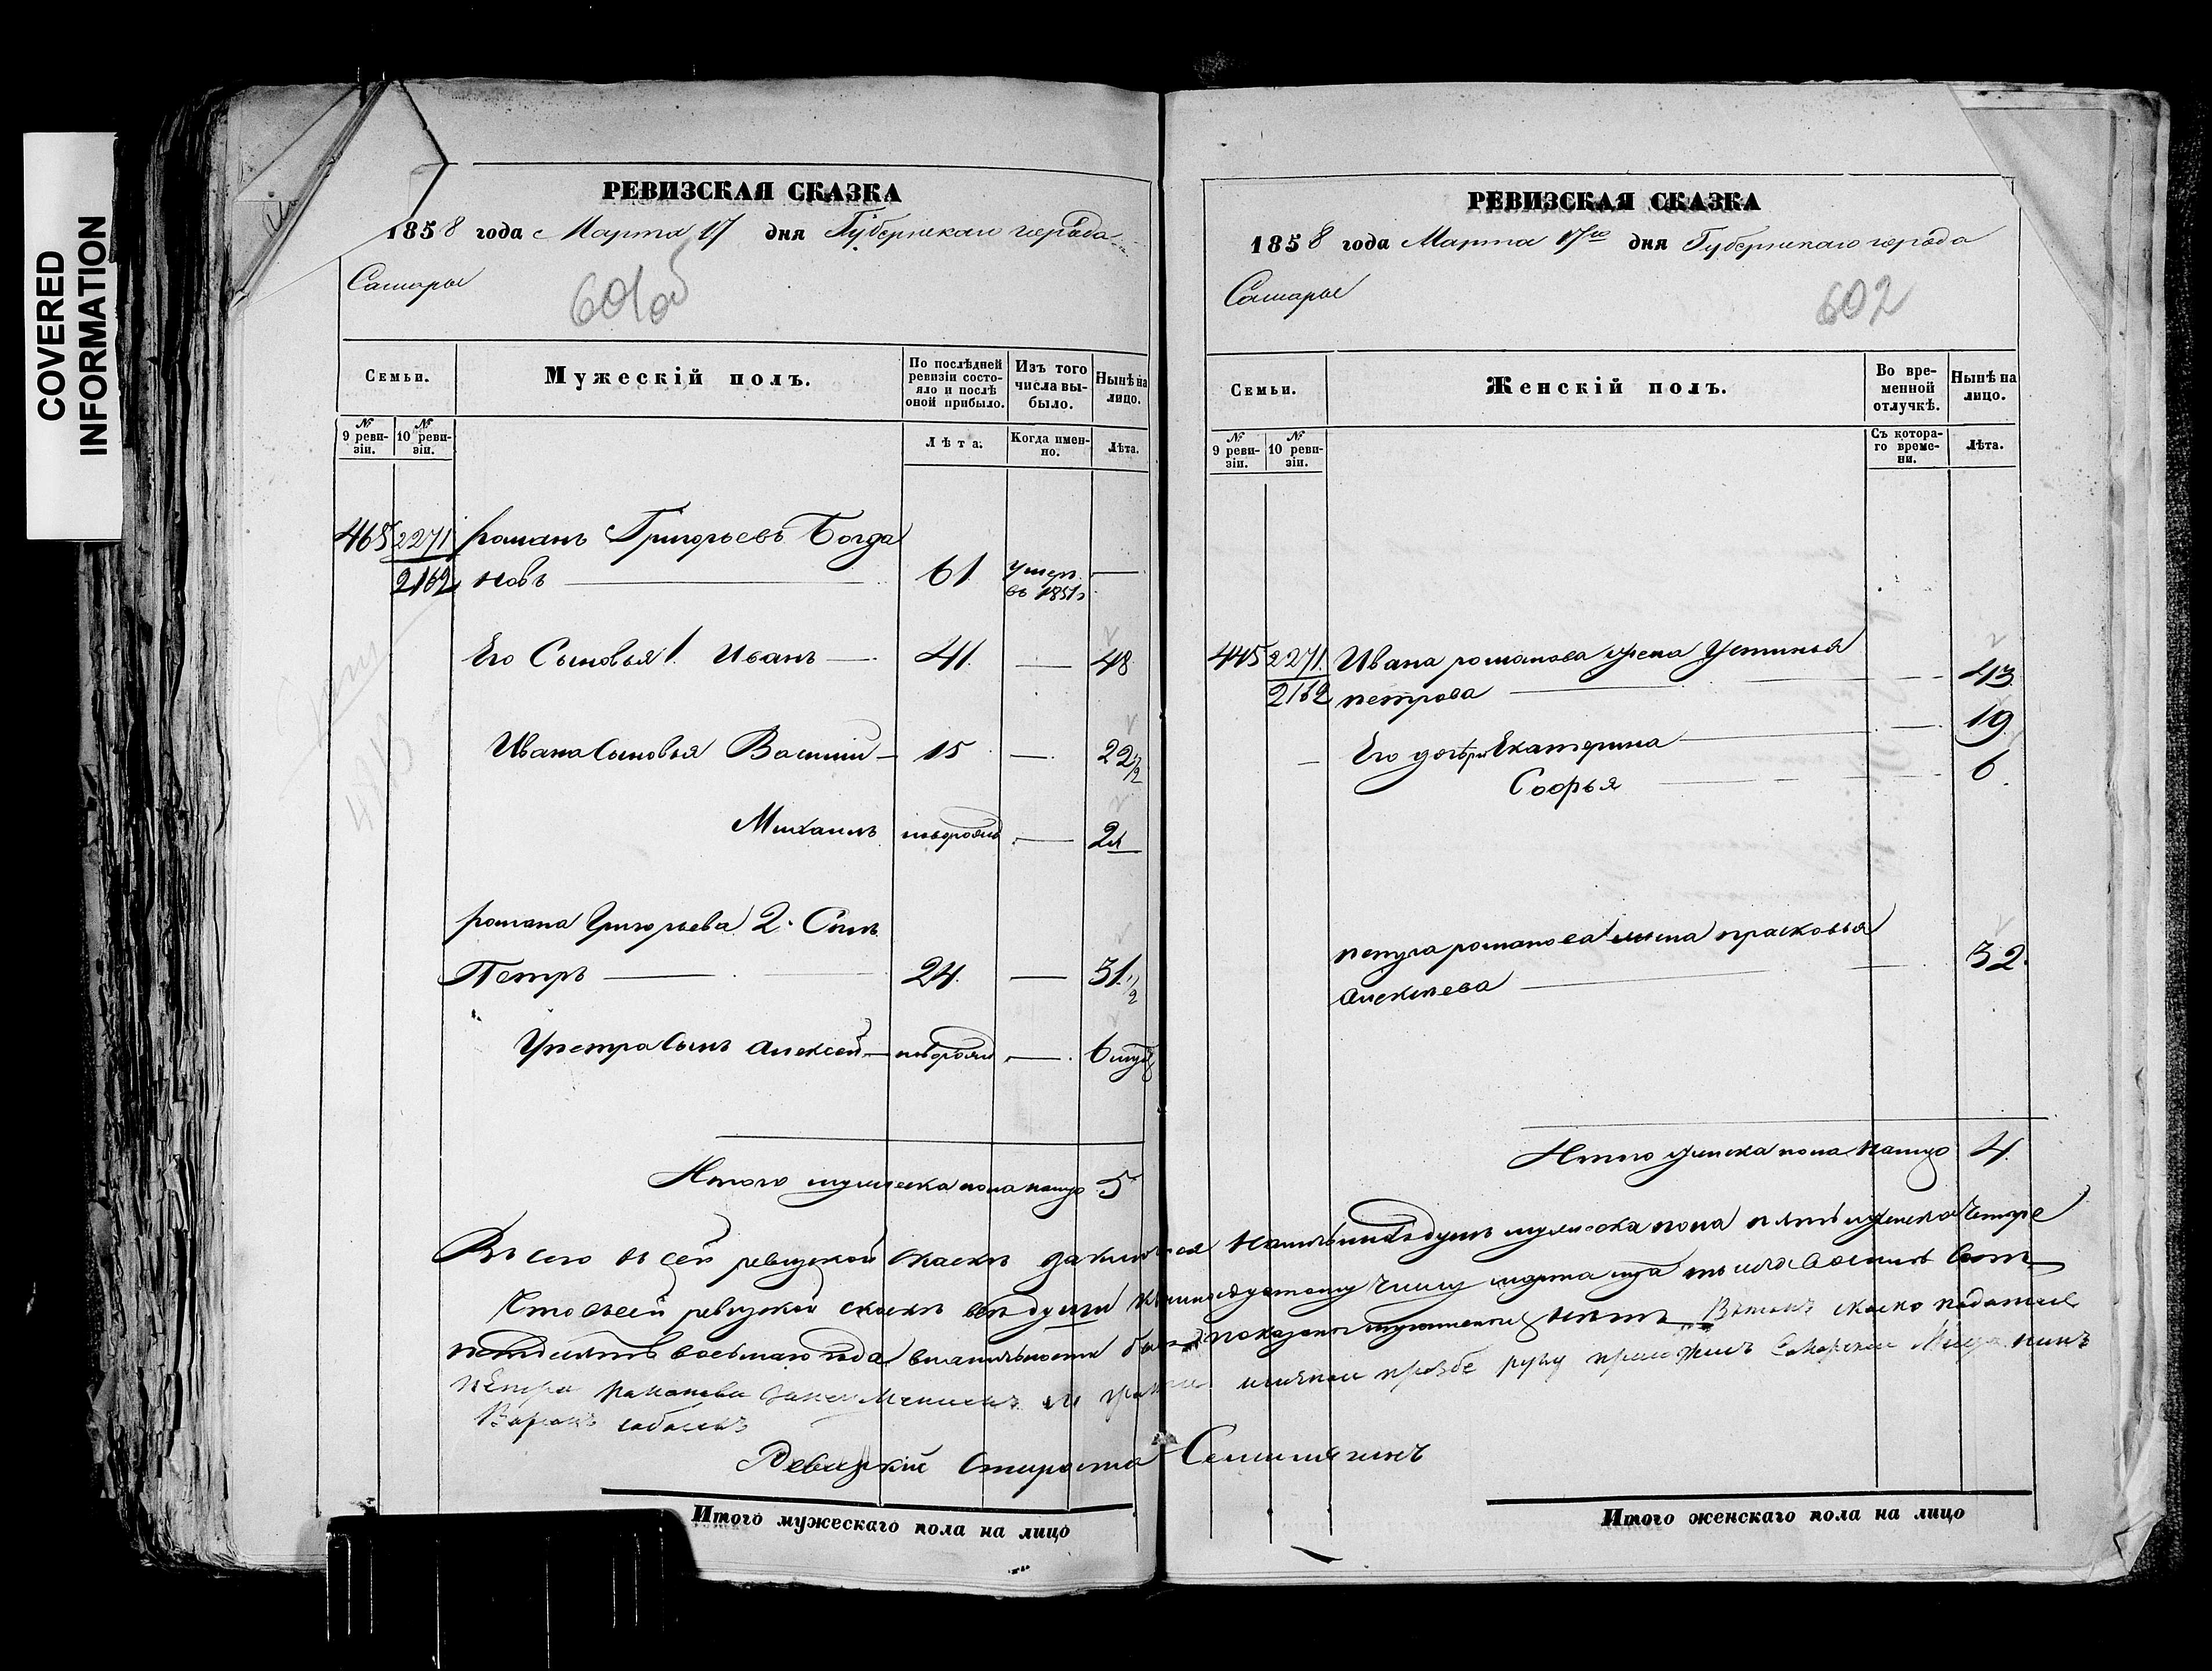 COVERED
INFORMATION
РЕВИЗСКАЯ СКАЗКА
1858 года Марта 17 дня Губернскаго города
Самары
601об
Семьи.
Мужескій полъ.
По послѣдней ревизіи состояло и послѣ оной прибыло.
Изъ того числа выбыло.
Нынѣ на лицо.
№ 9 ревизіи.
№ 10 ревизіи.
Лѣта.
Когда именно.
Лѣта.
465 2271 Романъ Григорьевъ Богда
2162 новъ — 61 умеръ въ 1851 —
Его Сыновья 1. Иванъ — 41 — 48
Ивана Сыновья Василий — 15 — 22 1/2
Михаилъ новорожд — 2
Романа Григорьева 2. Сынъ
Петръ — 24 — 31 1/2
У петра Сынъ Алексей — новорожд — 6
Итого мужеска пола налицо 5
РЕВИЗСКАЯ СКАЗКА
1858 года Марта 17го дня Губернскаго города
Самары
602
Семьи.
Женскій полъ.
Во временной отлучкѣ.
Нынѣ на лицо.
№ 9 ревизіи.
№ 10 ревизіи.
Съ котораго времени.
Лѣта.
445 2271 Ивана романова жена Устинья
2162 петрова — 43
Его дочери Екатерина — 19
Софья — 6
петра романова жена прасковья
Алексеева — 32
Итого женска пола налицо 4
Всего в сей ревизской сказке душъ мужеска пола пять женска четыре
Что в сей ревизской сказке все души числу марта тысяча восемь сот
пятдесятъ восьмаго года показаны нетъ
петра просбе руку приложилъ Самарской Мещанинъ
Ревизкій Староста
Итого мужескаго пола на лицо
Итого женскаго пола на лицо